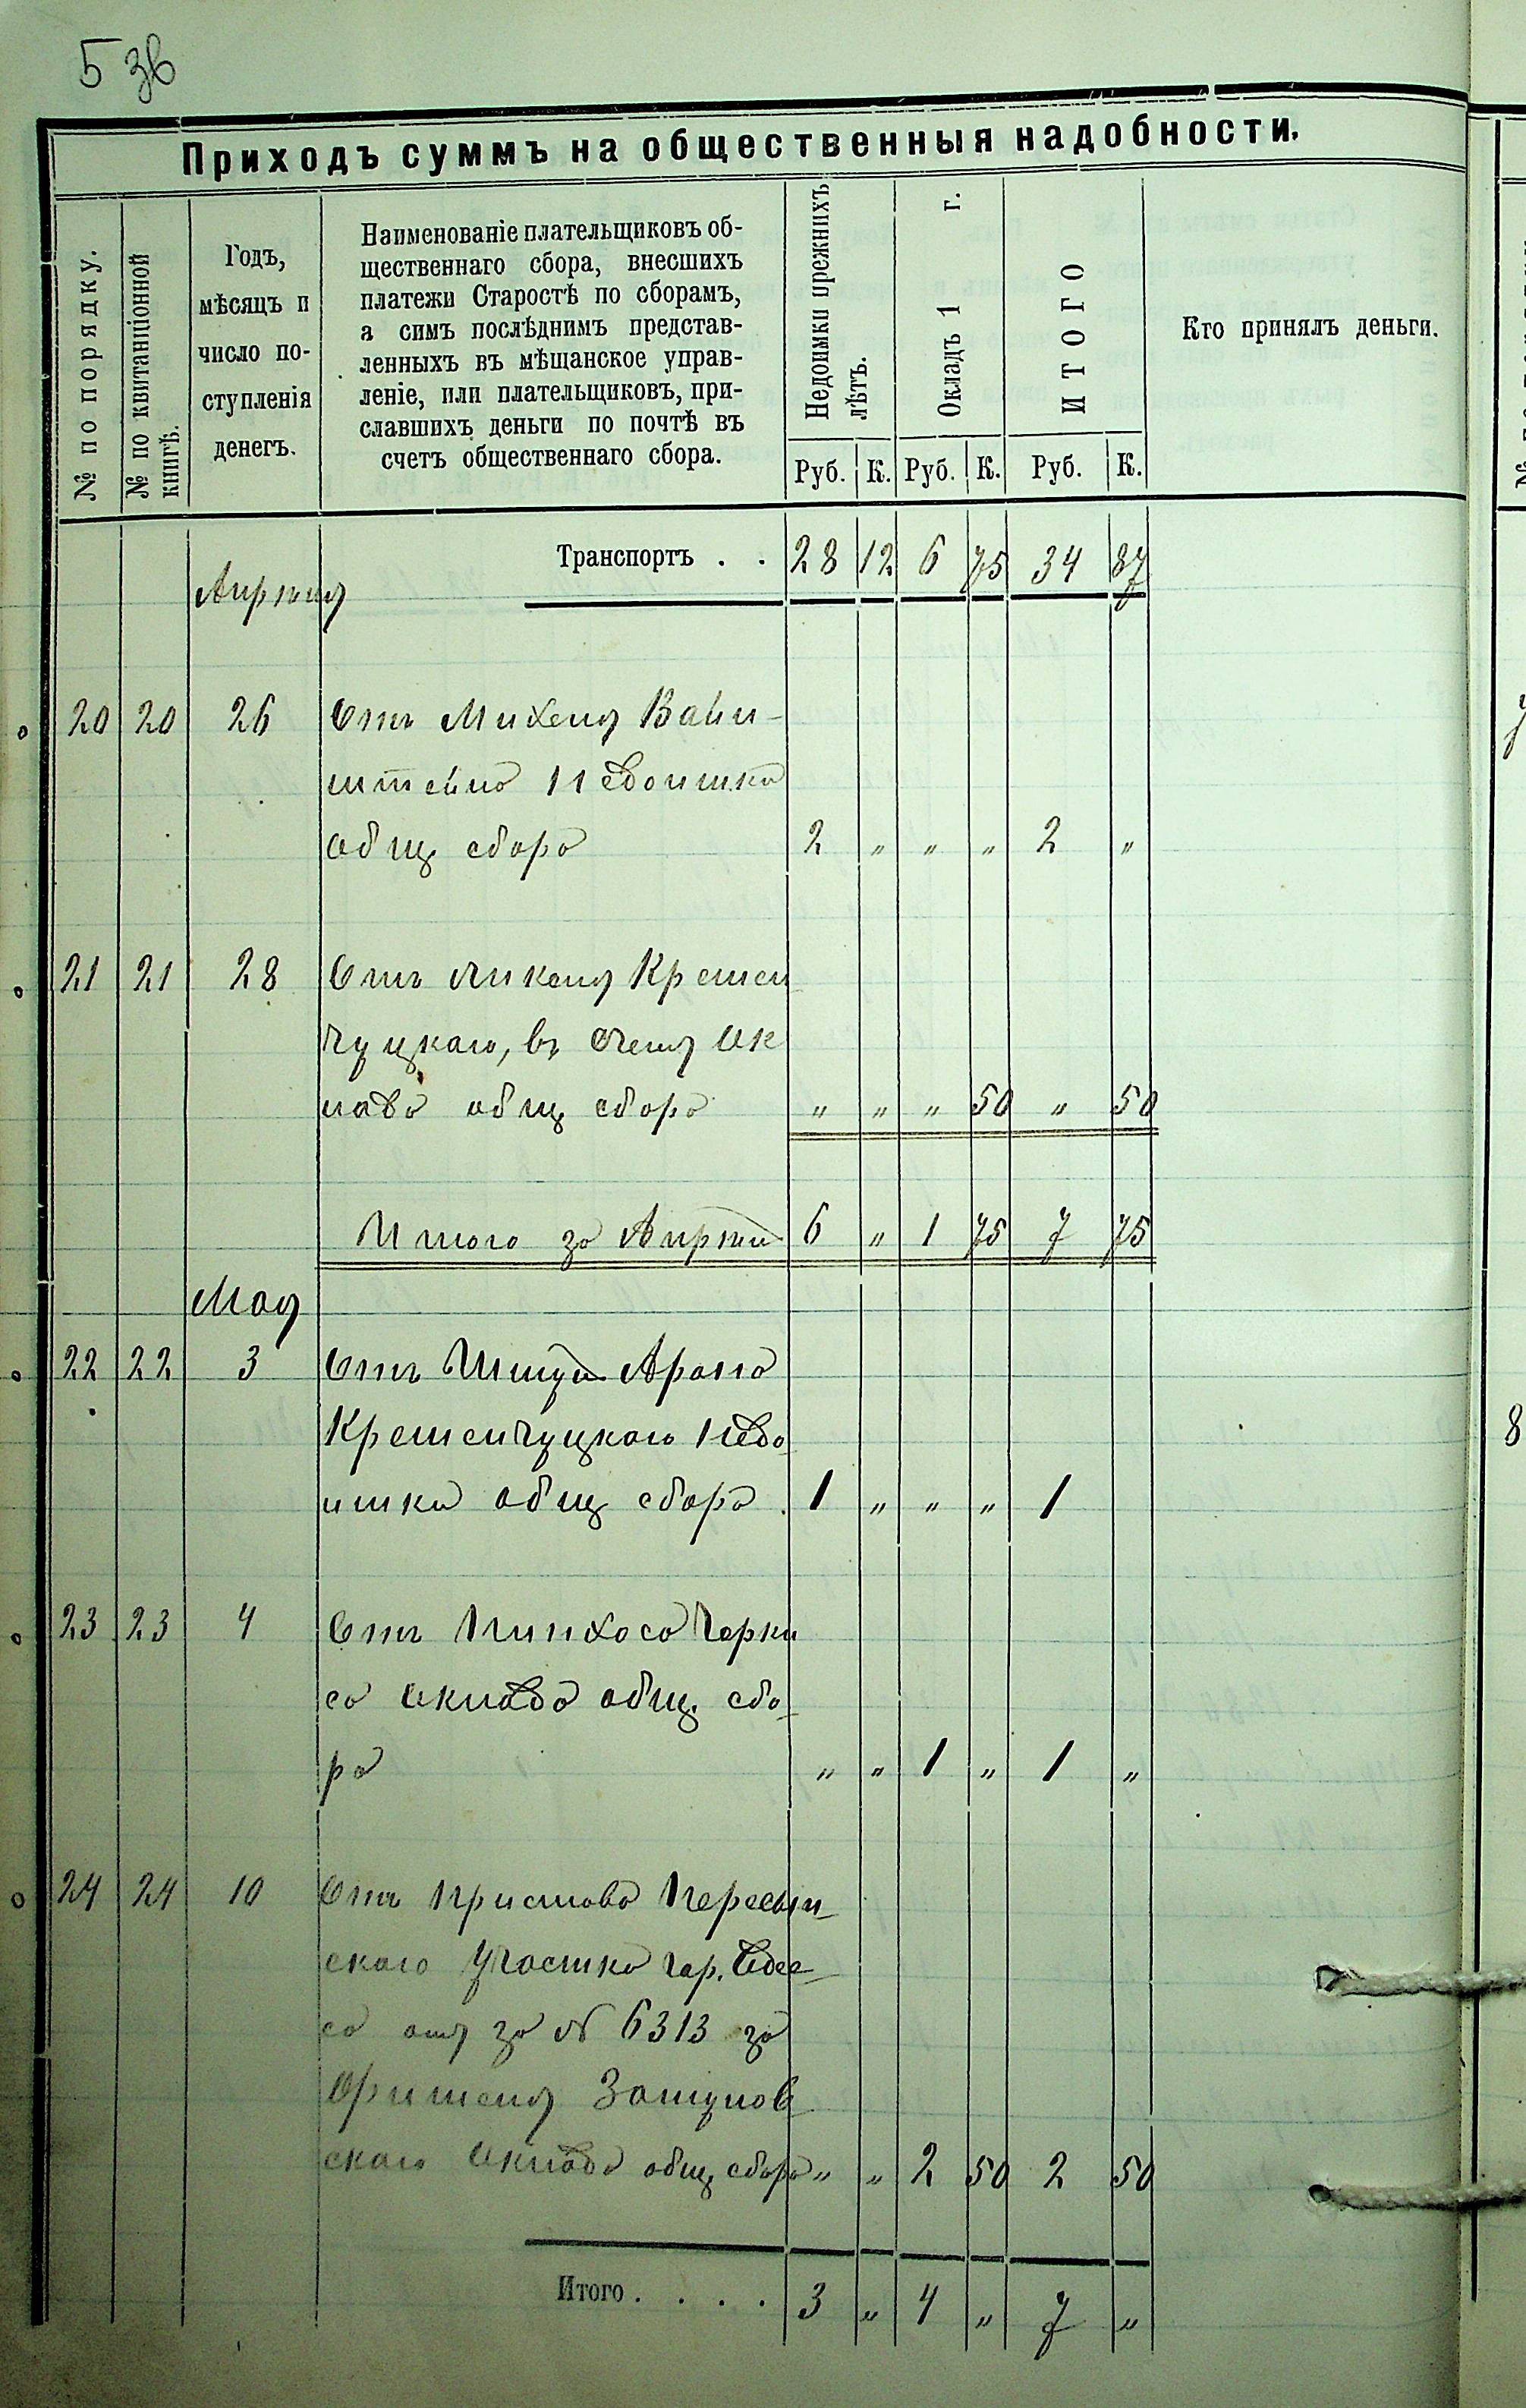 5 зв
Приходъ суммъ на общественныя надобности.
№ по порядку.
№ по квитанціонной
книгѣ.
Годъ,
мѣсяцъ и
число по-
ступленія
денегъ.
Наименованіе плательщиковъ об-
щественнаго сбора, внесшихъ
платежи Старостѣ по сборамъ,
а симъ послѣднимъ представ-
ленныхъ въ мѣщанское управ-
леніе, или плательщиковъ, при-
славшихъ деньги по почтѣ въ
счетъ общественнаго сбора.
Недоимки прежнихъ
лѣтъ.
Окладъ 1 г.
ИТОГО
Кто принялъ деньги.
Руб. К. Руб. К. Руб. К.
Транспортъ . . 28 12 6 75 34 87
Апрѣля
20 20 26 Отъ Михеля Вайн-
штейна недоимка
общ сбора 2 „ „ „ 2 „
21 21 28 Отъ Кремен
чуцкаго, въ счетъ ок
лада общ сбора „ „ „ 50 „ 50
Итого за Апрѣль 6 „ 1 75 7 75
Мая
22 22 3 Отъ Арона
Кременчуцкаго недо
имка общ сбора . 1 „ „ „ 1
23 23 4 Отъ Пинхоса Черка
са оклада общ. сбо
ра „ „ 1 „ 1 „
24 24 10 Отъ Пристава Пересып-
скаго участка гор. Одес-
са отъ за № 6313 за
скаго оклада общ сбора „ „ 2 50 2 50
Итого . . . . 3 „ 4 „ 7 „
8